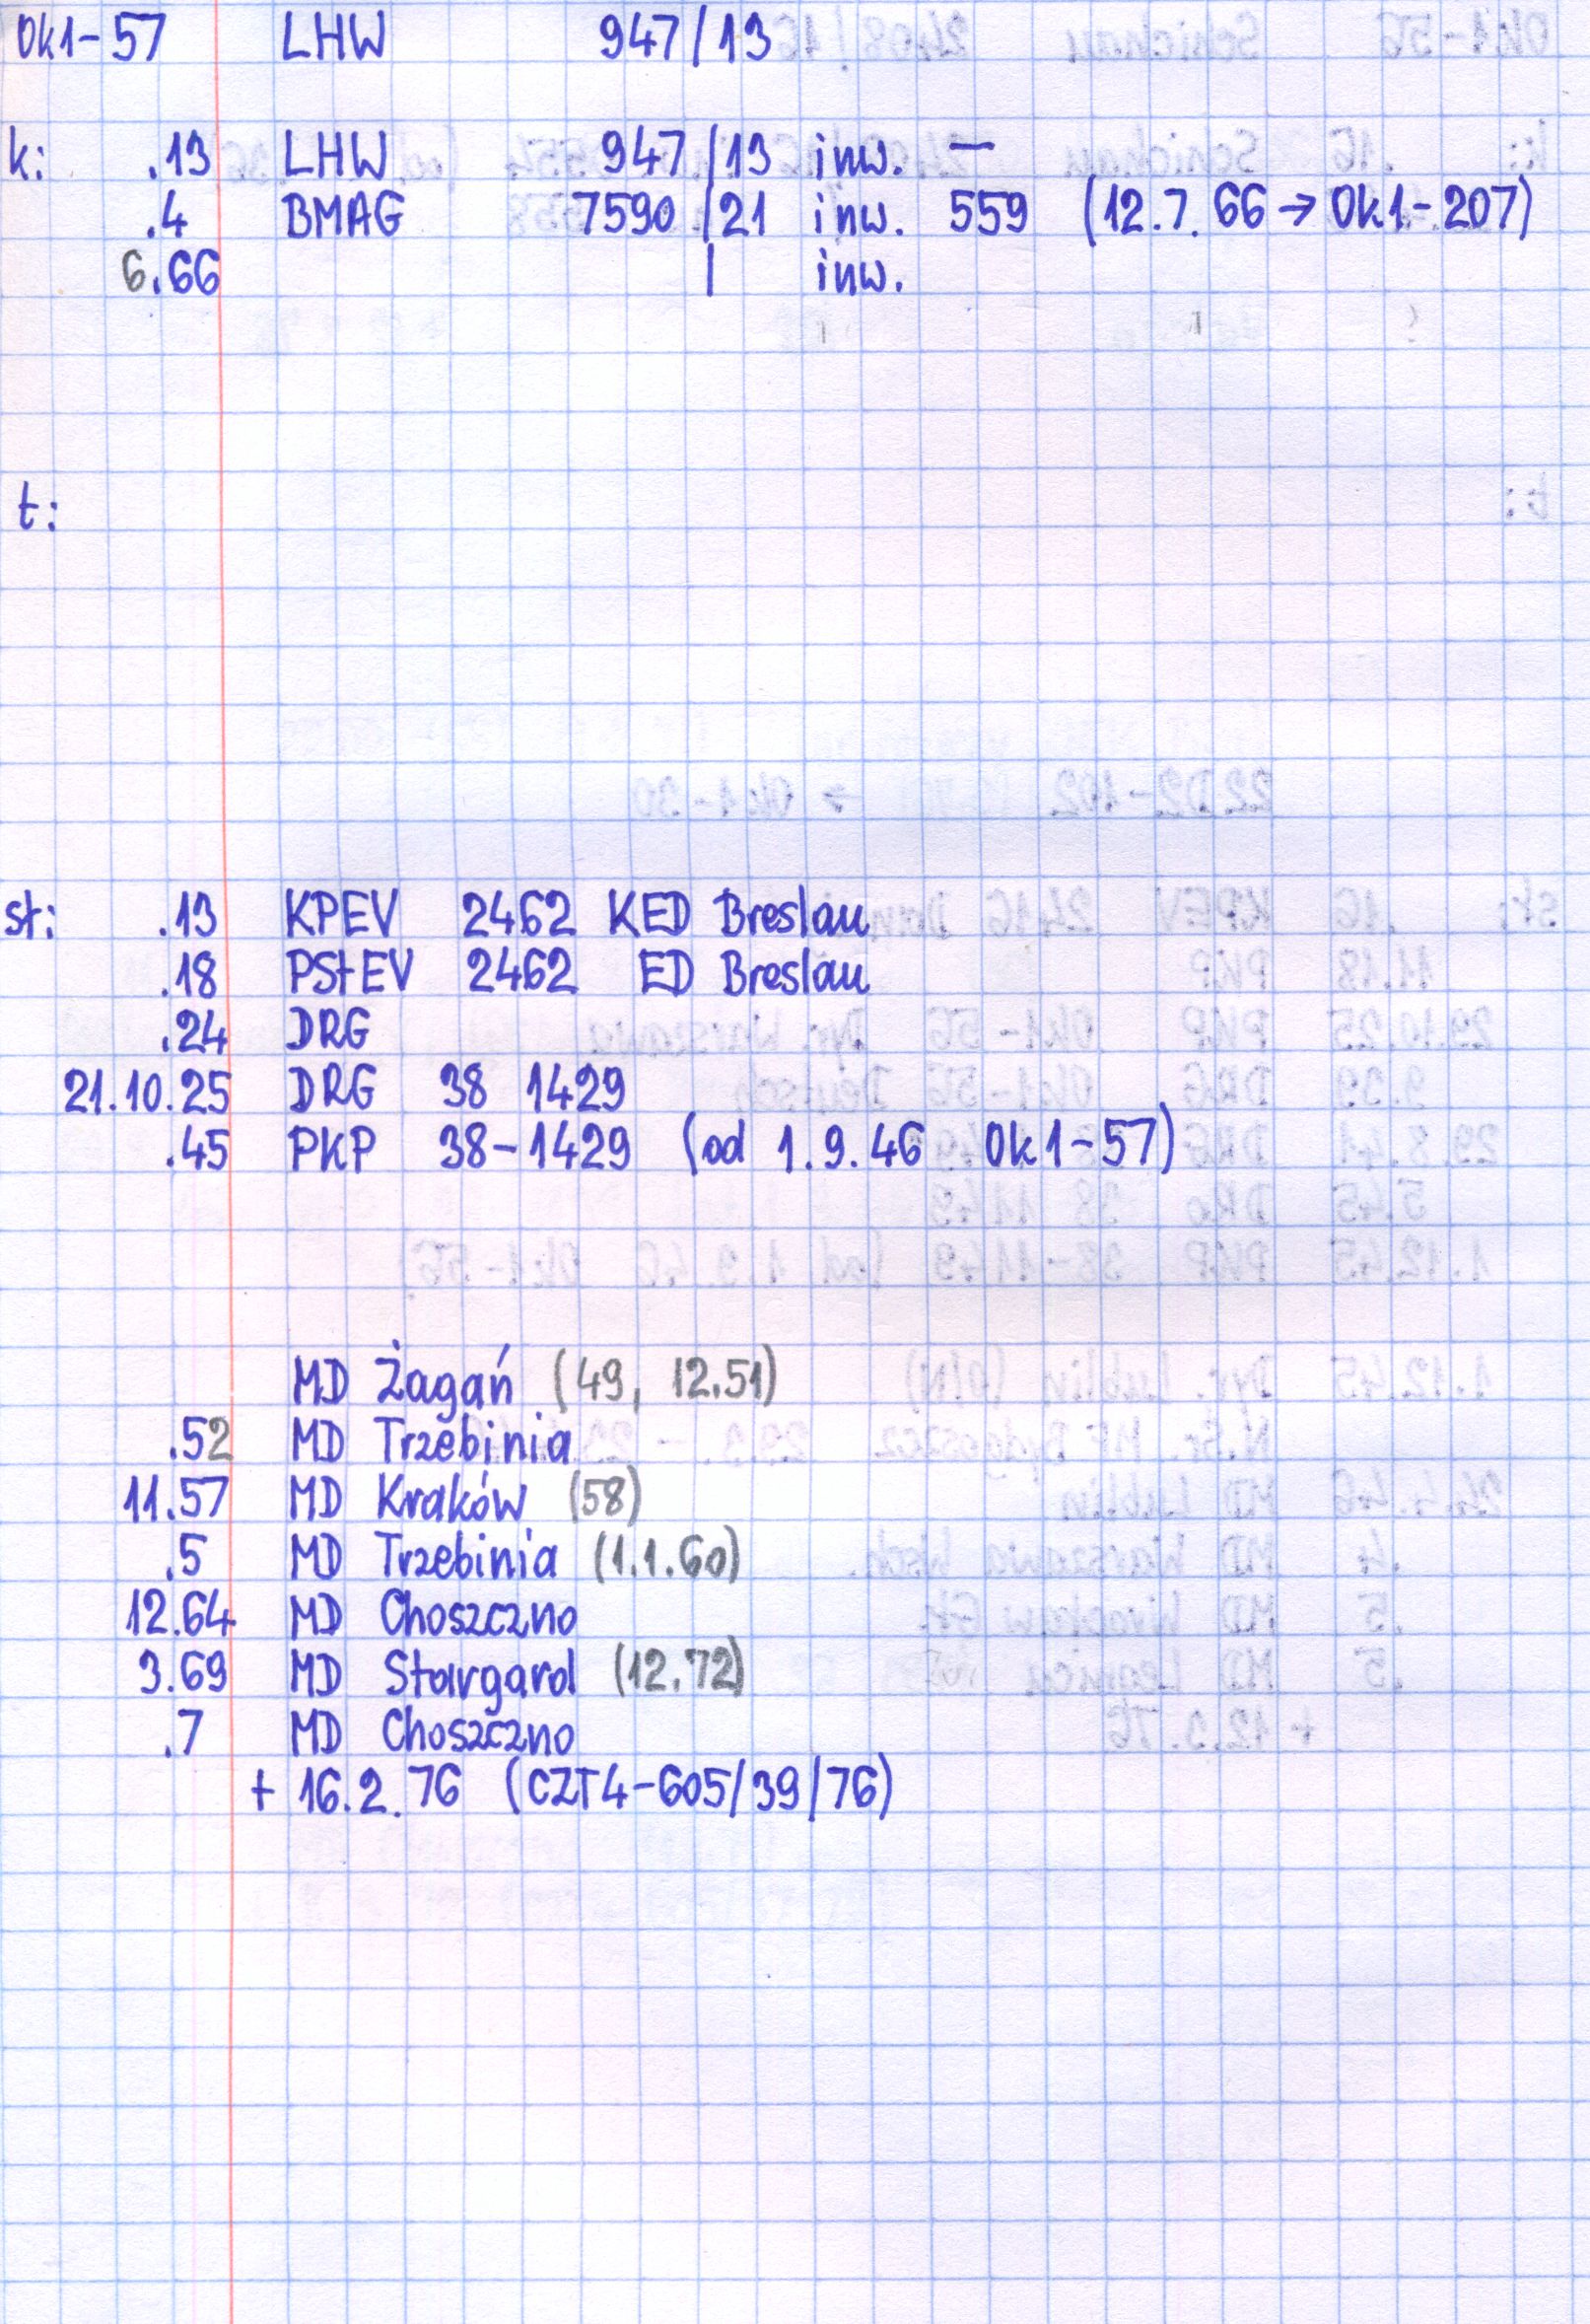 Ok1-57 LHW 947/13
k: .13 LHW 947/13 inw. —
.4 BMAG 7590/21 inw. 559 (12.7.66 → Ok1-207)
6.66 / inw.
t:
st: .13 KPEV 2462 KED Breslau
.18 PStEV 2462 ED Breslau
.24 DRG
21.10.25 DRG 38 1429
.45 PKP 38-1429 (od 1.9.46 Ok1-57)
MD Żagań (49, 12.51)
.52 MD Trzebinia
11.57 MD Kraków (58)
.5 MD Trzebinia (1.1.60)
12.64 MD Choszczno
3.69 MD Stargard (12.72)
.7 MD Choszczno
+ 16.2.76 (CZT4-605/39/76)